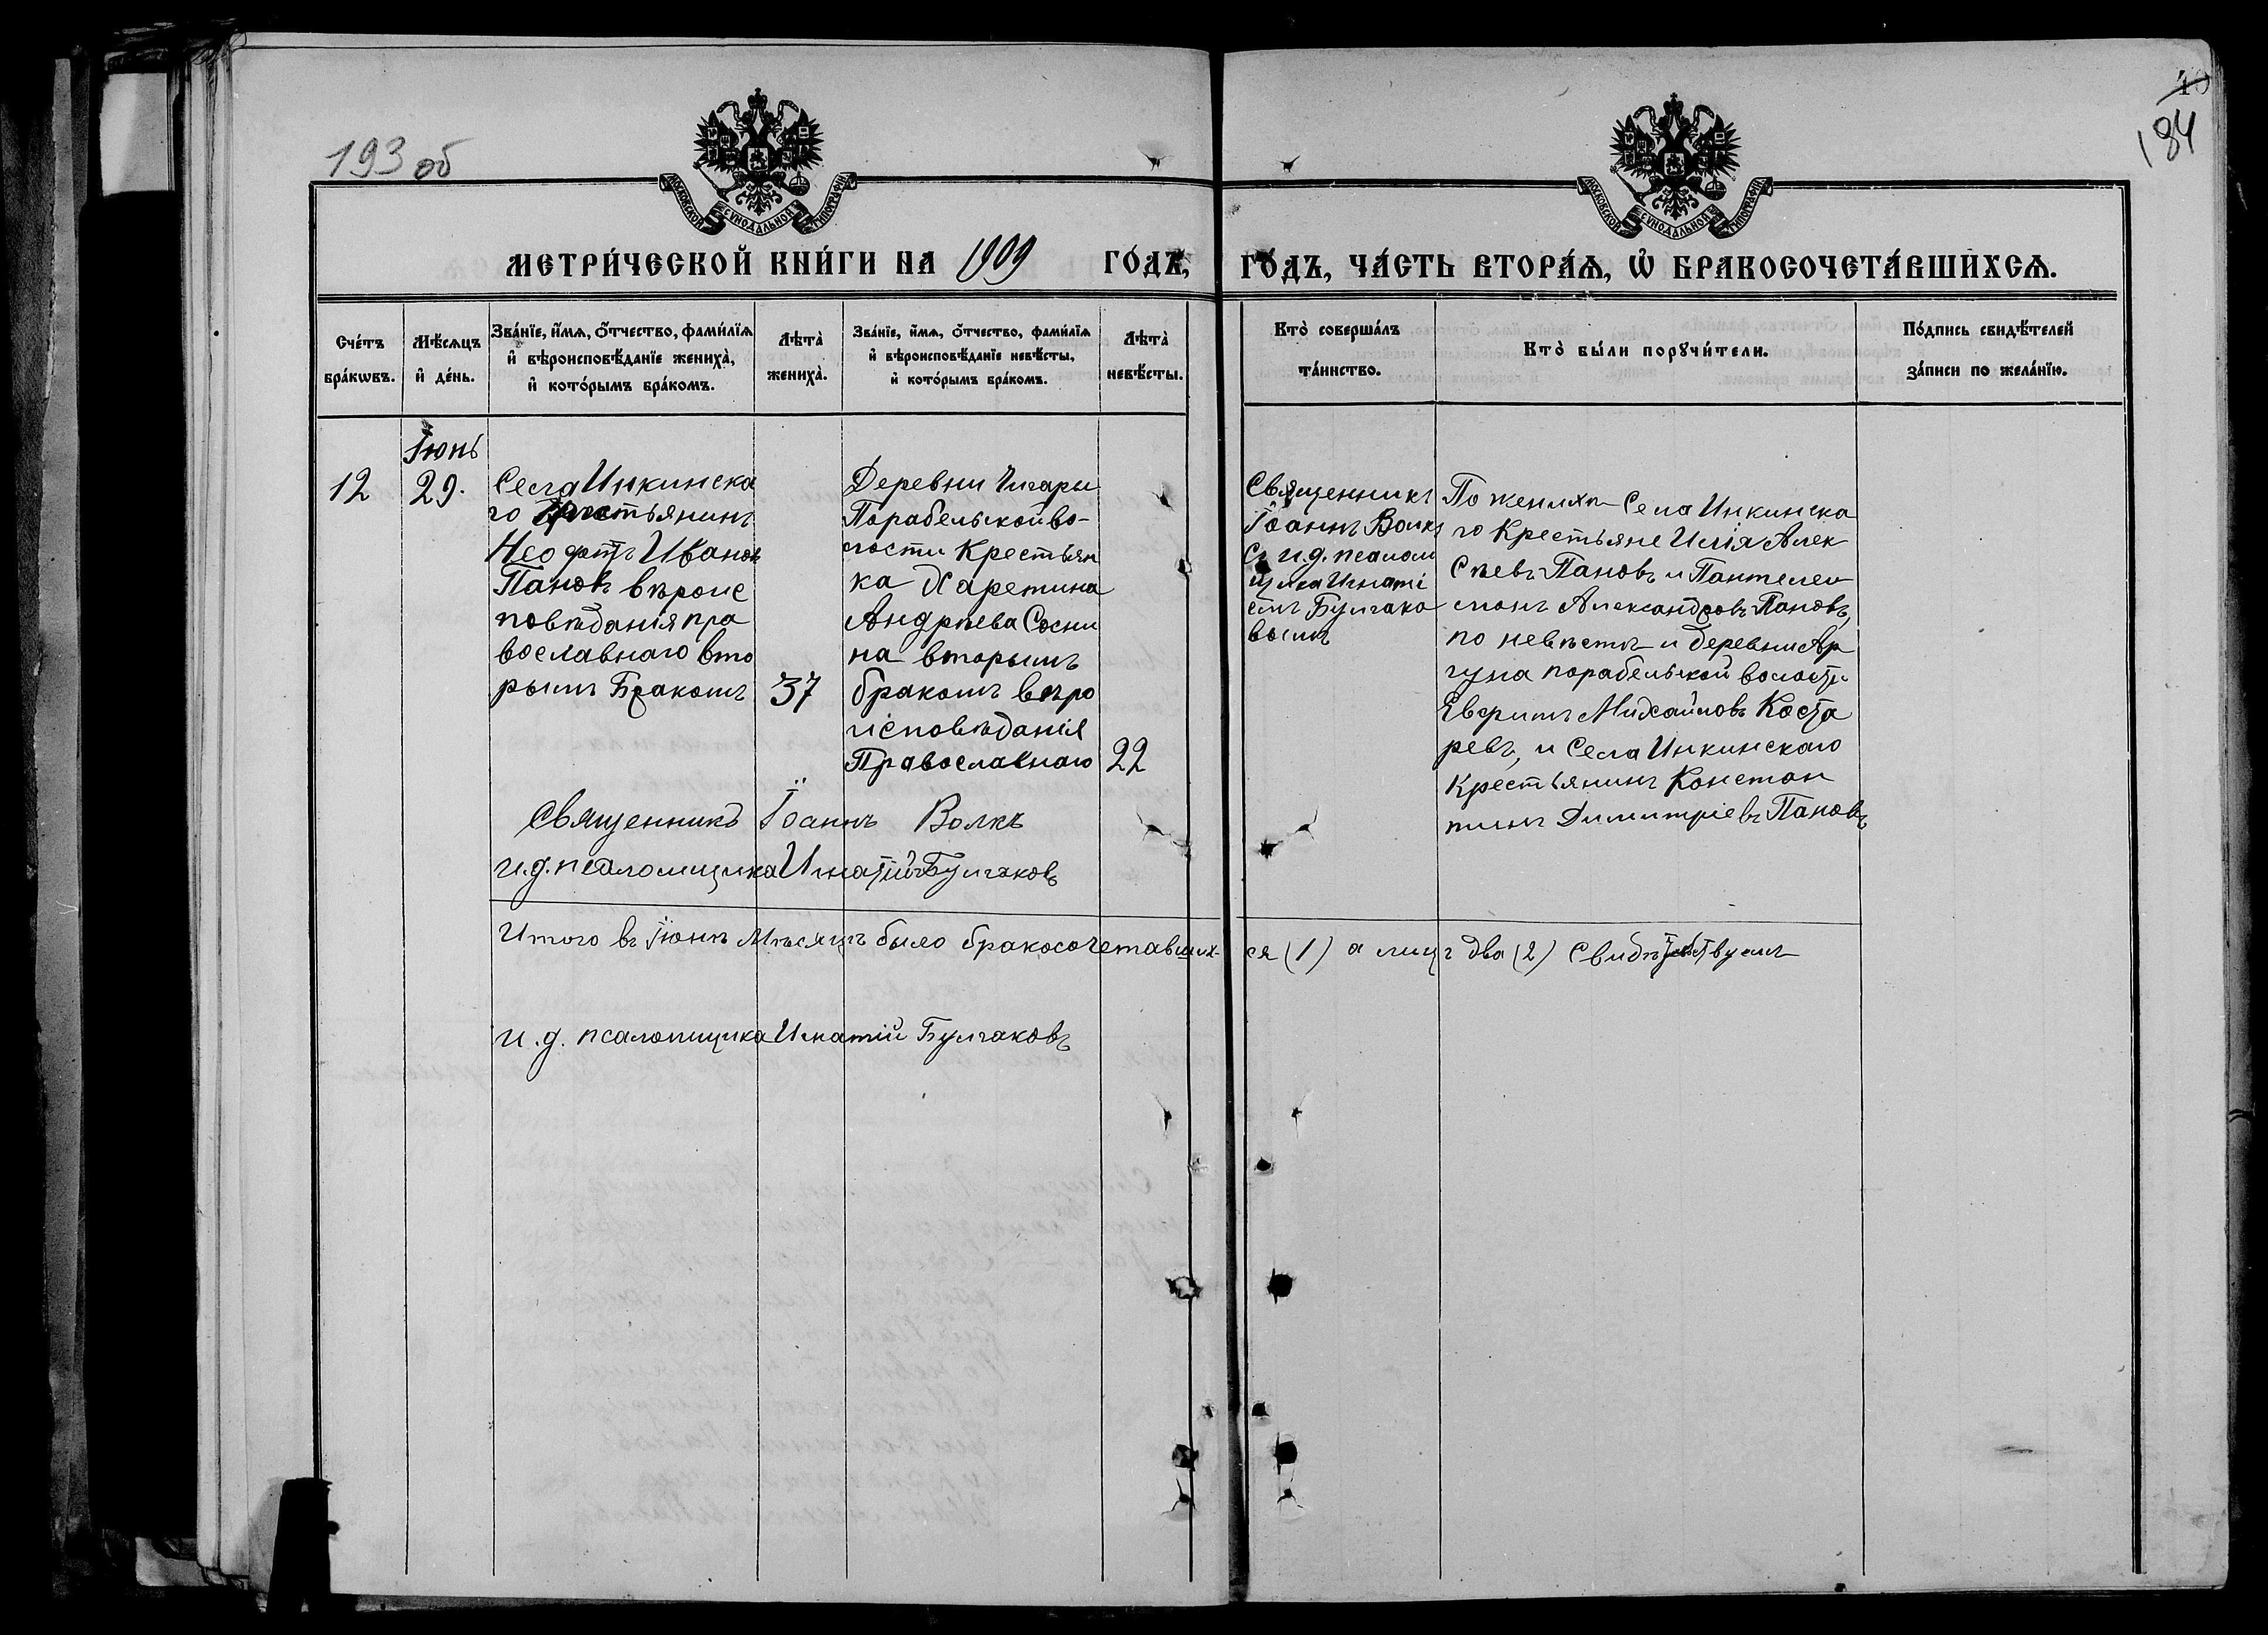 193 об
40
184
МОСКОВСКОЙ СУНОДАЛЬНОЙ ТИПОГРАФIИ
МОСКОВСКОЙ СУНОДАЛЬНОЙ ТИПОГРАФIИ
МЕТРИ́ЧЕСКОЙ КНИ́ГИ НА 1909 ГО́ДЪ,
ГО́ДЪ, ЧА́СТЬ ВТОРА́Ѧ, Ѡ҆ БРАКОСОЧЕТА́ВШИХСѦ.
Сче́тъ бра́кѡвъ.
Мѣ́сѧцъ и҆ де́нь.
Зва́нїе, и҆́мѧ, ѻ҆́тчество, фами́лїѧ
и҆ вѣроисповѣ́данїе жениха̀,
и҆ кото́рымъ бра́комъ.
Лѣта̀ жениха̀.
Зва́нїе, и҆́мѧ, ѻ҆́тчество, фами́лїѧ
и҆ вѣроисповѣ́данїе невѣ́сты,
и҆ кото́рымъ бра́комъ.
Лѣта̀ невѣ́сты.
Кто̀ соверша́лъ
та́инство.
Кто̀ бы́ли порꙋчи́тели.
По́дпись свидѣ́телей
за́писи по жела́нїю.
Iюнь
12
29.
Села Инкинска
го Крестьянинъ
Неофитъ Ивановъ
Пановъ вѣроис
повѣданія пра
вославнаго вто
рымъ Бракомъ
37
Деревни Чигары
Парабельской во-
лости Крестьян
ка Харетина
Андрѣева Сосни
на вторымъ
бракомъ вѣро
исповѣданія
Православнаго
22
Священникъ
Іоаннъ Волкъ
съ и.д. псалом
щика Игнаті
емъ Булгако
вымъ
По женихѣ Села Инкинска
го Крестьяне Илія Алек
Сѣевъ Пановъ и Пантелеи
монъ Александровъ Пановъ,
по невѣстѣ и деревни Ар
гуна порабельской волости
Михайловъ Коста
ревъ, и Села Инкинскаго
Крестьянинъ Констан
тинъ Димитріевъ Пановъ
Священникъ Іоаннъ Волкъ
и.д. псаломщика Игнатій Булгаковъ
Итого въ Іюнѣ Мѣсяцѣ было бракосочетавших-
ся (1) а лицъ два (2) Свидѣтельствуемъ
и.д. псаломщика Игнатій Булгаковъ